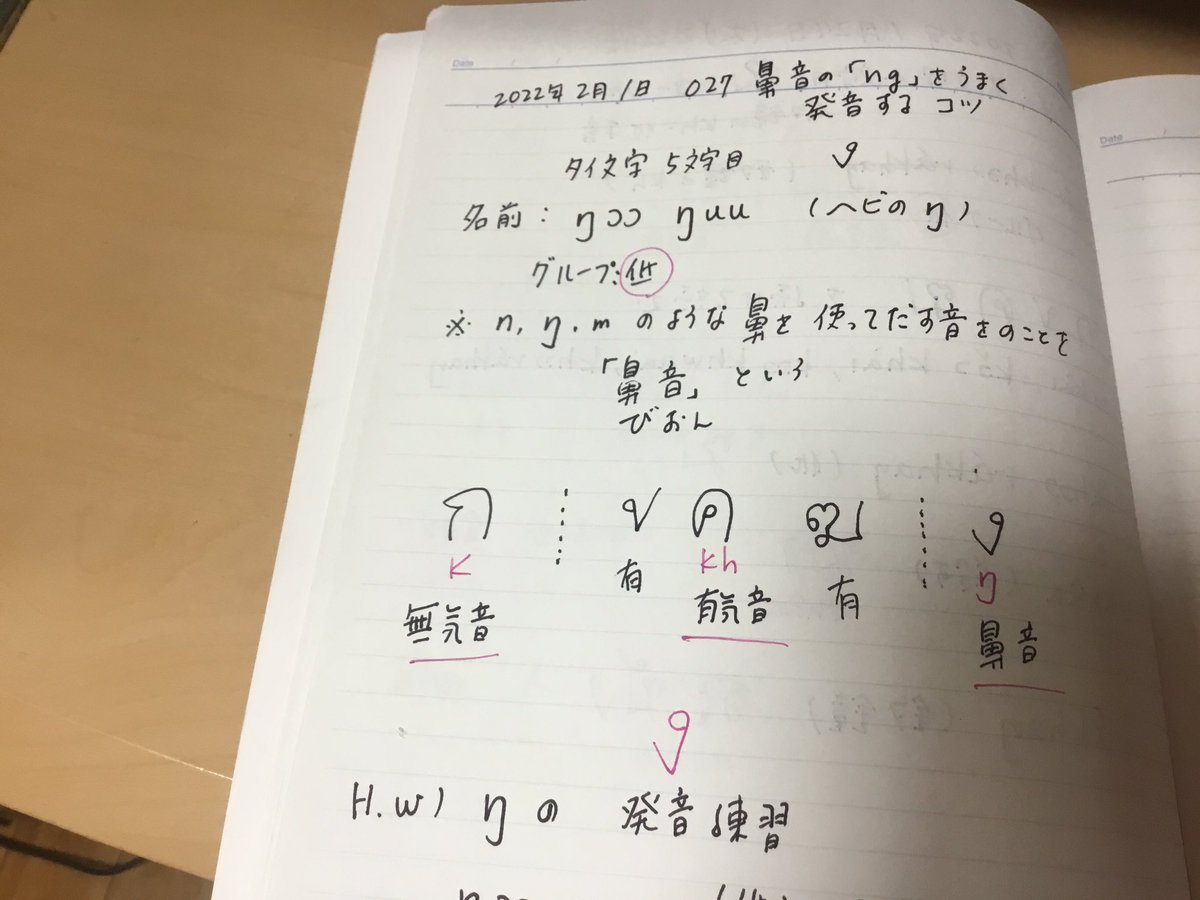 Date
2022年 2月 1日 027 鼻音の「ng」をうまく
発音する コツ
タイ文字 5文字目 ง
名前: ŋɔɔ ŋuu (ヘビの ŋ)
グループ:低
※ n, ŋ.m のような 鼻を 使ってだす音をのことを
「鼻音」という
びおん
ก ข ค ฆ ง
K kh ŋ
有 有
無気音 有気音 鼻音
ง
H.W) ŋ の 発音練習
Date